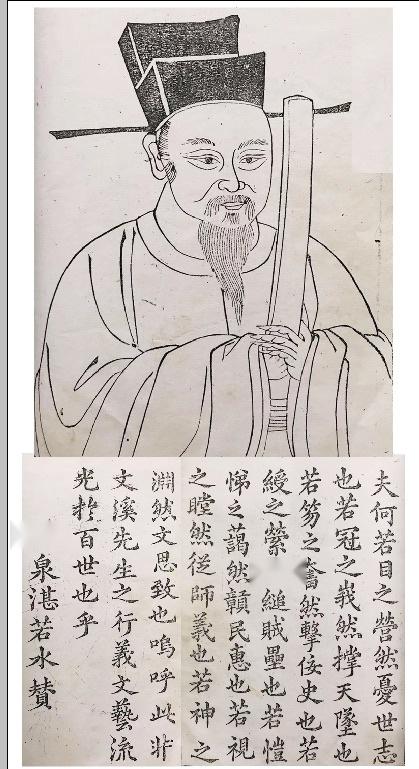 夫何若目之營然憂世志
也若冠之峩然撑天墜也
若笏之奮然擊佞史也若
綬之縈 縋賊壘也若愷
悌之藹然贛民惠也若視
之瞠然從師義也若神之
淵然文思致也嗚呼此非
文溪先生之行義文藝流
光扵百世也乎
泉湛若水賛